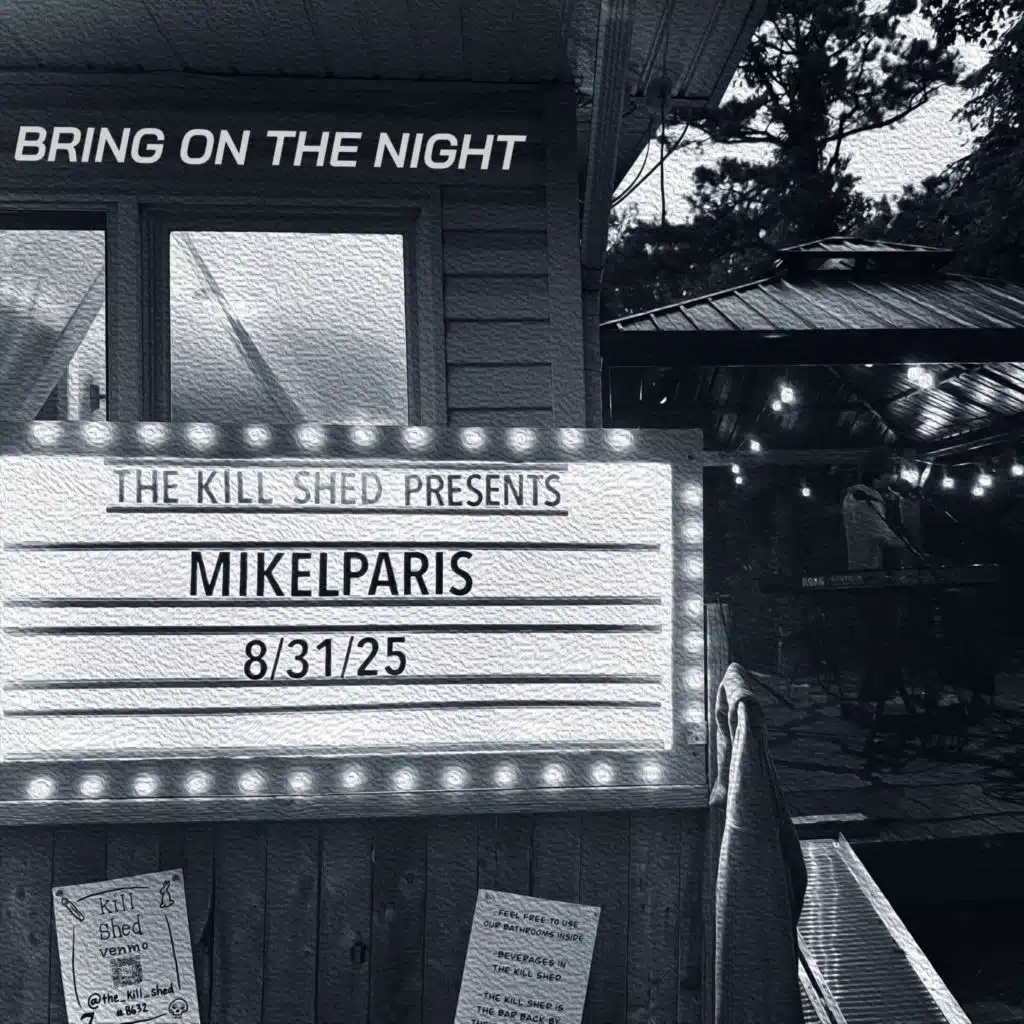 BRING ON THE NIGHT
THE KILL SHED PRESENTS
MIKELPARIS
8/31/25
KORG
Kill
Shed
venmo
@the_kill_shed
#8632
FEEL FREE TO USE
OUR BATHROOMS INSIDE
BEVERAGES IN
THE KILL SHED
THE KILL SHED IS
THE BAR BACK BY